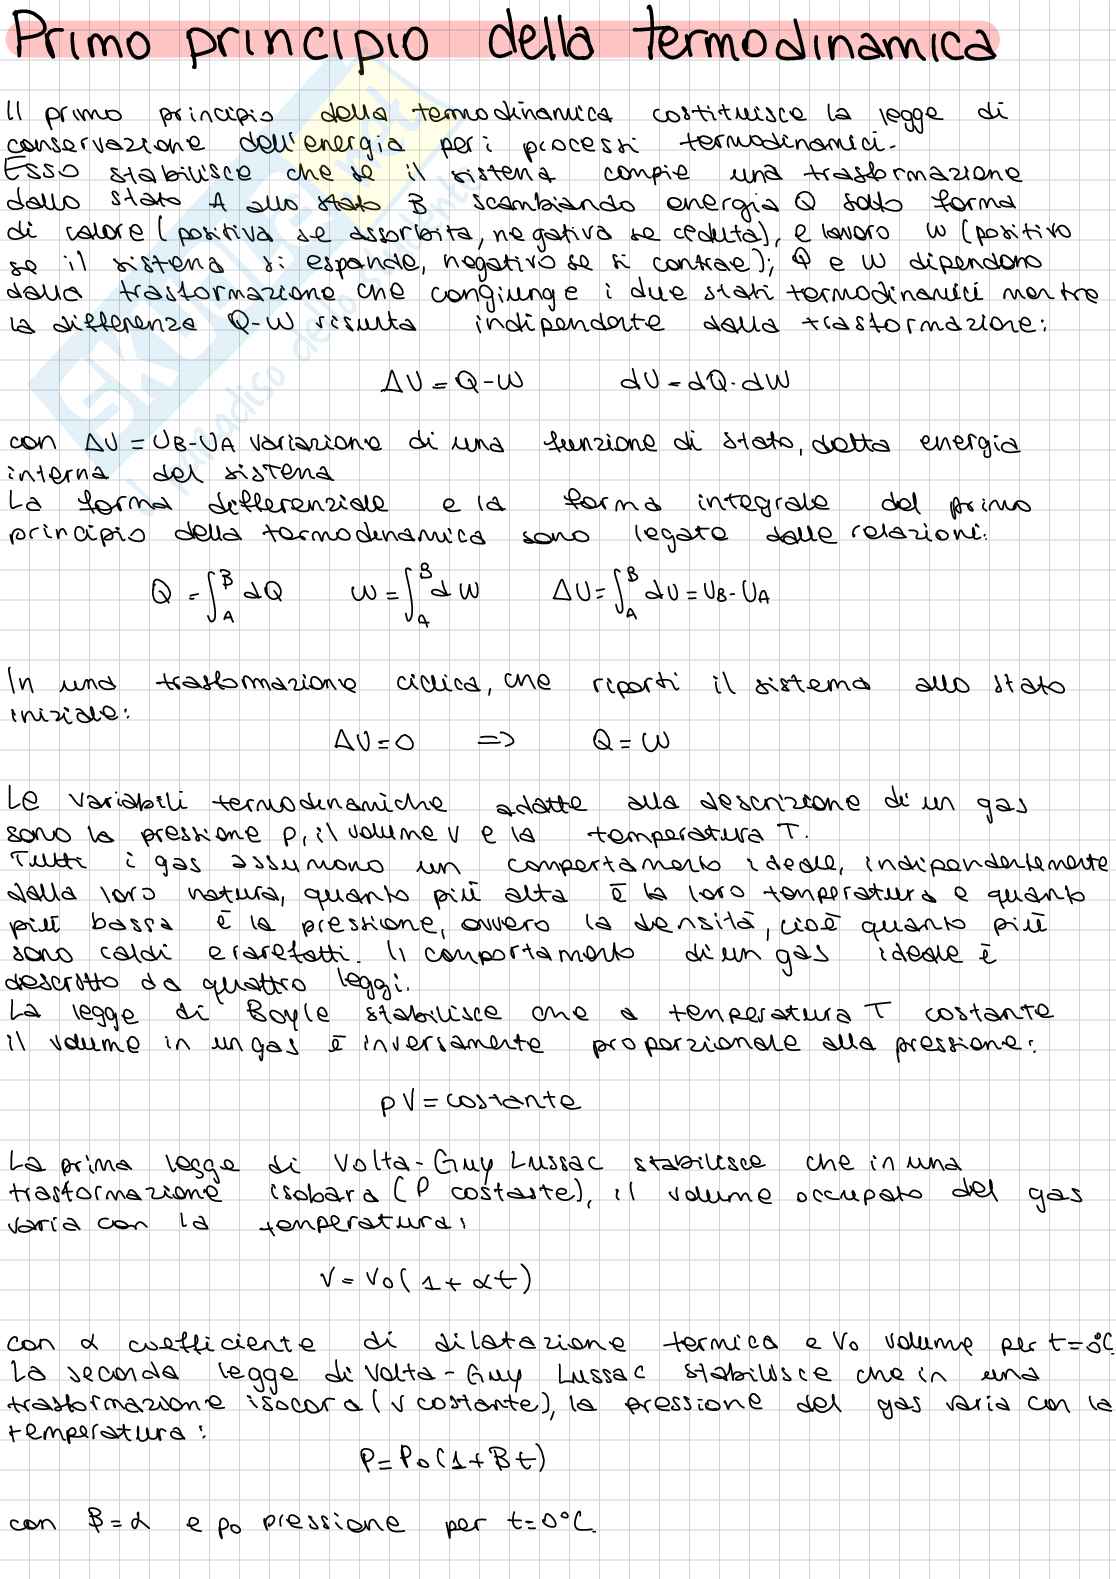 Primo principio della termodinamica
Il primo principio della termodinamica costituisce la legge di
conservazione dell'energia per i processi termodinamici.
Esso stabilisce che se il sistema compie una trasformazione
dallo stato A allo stato B scambiando energia Q sotto forma
di calore (positiva se assorbita, negativa se ceduta), e lavoro W (positivo
se il sistema si espande, negativo se si contrae); Q e W dipendono
dalla trasformazione che congiunge i due stati termodinamici mentre
la differenza Q-W risulta indipendente dalla trasformazione:
ΔU = Q-W dU = dQ·dW
con ΔU = UB-UA variazione di una funzione di stato, detta energia
interna del sistema
La forma differenziale e la forma integrale del primo
principio della termodinamica sono legate dalle relazioni:
Q = ∫_A^B dQ W = ∫_A^B dW ΔU = ∫_A^B dU = UB-UA
In una trasformazione ciclica, che riporti il sistema allo stato
iniziale:
ΔU=0 => Q=W
Le variabili termodinamiche adatte alla descrizione di un gas
sono la pressione p, il volume V e la temperatura T.
Tutti i gas assumono un comportamento ideale, indipendentemente
dalla loro natura, quanto più alta è la loro temperatura e quanto
più bassa è la pressione, ovvero la densità, cioè quanto più
sono caldi e rarefatti. Il comportamento di un gas ideale è
descritto da quattro leggi.
La legge di Boyle stabilisce che a temperatura T costante
il volume in un gas è inversamente proporzionale alla pressione:
pV = costante
La prima legge di Volta-Guy Lussac stabilisce che in una
trasformazione isobara (P costaste), il volume occupato del gas
varia con la temperatura:
V = V0 (1+αt)
con α coefficiente di dilatazione termica e V0 volume per t=0°C
La seconda legge di Volta-Guy Lussac stabilisce che in una
trasformazione isocora (V costante), la pressione del gas varia con la
temperatura:
P = P0 (1+Bt)
con β=α e p0 pressione per t=0°C.